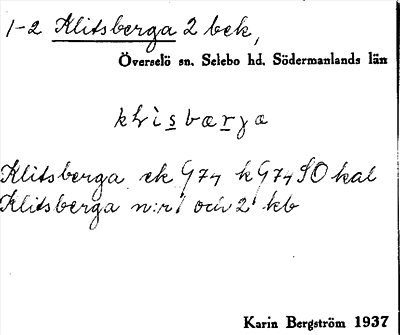 1-2 Klitsberga 2 bek,
Överselö sn. Selebo hd. Södermanlands län
Klitsberga ek G74 k G74 SO kal
Klitsberga n:r 1 och 2 kb
Karin Bergström 1937